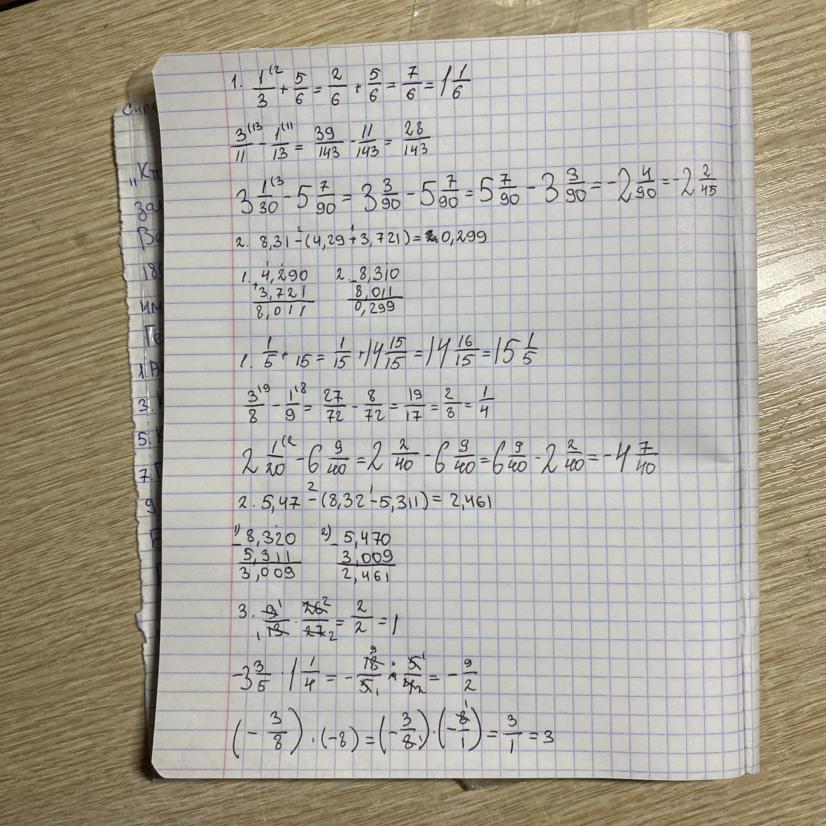 1. 1/3 (2 + 5/6 = 2/6 + 5/6 = 7/6 = 1 1/6
3/11 (13 - 1/13 (11 = 39/143 - 11/143 = 28/143
3 1/30 (3 - 5 7/90 = 3 3/90 - 5 7/90 = 5 7/90 - 3 3/90 = -2 4/90 = -2 2/45
2. 8,31 - (4,29 + 3,721) = 0,299
1. 4,290 2. 8,310
+3,721 - 8,011
8,011 0,299
1. 1/5 + 15 = 1/15 + 14 15/15 = 14 16/15 = 15 1/5
3/8 (9 - 1/9 (8 = 27/72 - 8/72 = 19/17 = 2/8 = 1/4
2 1/20 (2 - 6 9/40 = 2 2/40 - 6 9/40 = 6 9/40 - 2 2/40 = -4 7/40
2. 5,47 - (8,32 - 5,311) = 2,461
1) 8,320 2) 5,470
- 5,311 - 3,009
3,009 2,461
3. 9/13 · 26/27 = 2/2 = 1
-3 3/5 · 1 1/4 = - 18/5 · 5/4 = - 9/2
(- 3/8) · (-8) = (- 3/8) · (- 8/1) = 3/1 = 3